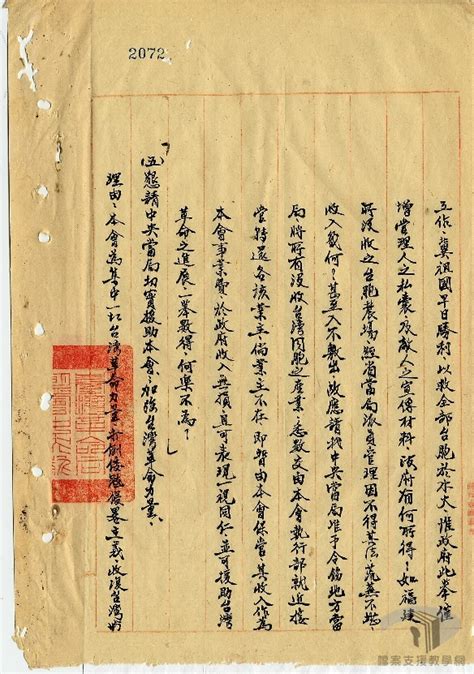 2072
工作,冀祖國早日勝利,以救全部台胞於水火,惟政府此舉僅
增管理人之私囊及敵人之宣傳材料,政府有何所得!如福建
所沒收之台胞農場,經省當局派員管理,因不得其法,荒蕪不堪,
收入幾何?甚至入不敷出,故應請我中央當局准予令飭地方當
局,將所有沒收台灣同胞之產業,悉數交由本會執行部就近接
管,轉還各該業主,倘業主不存,即暫由本會保管,其收入作為
本會事業費,於政府收入無損,且可表現一視同仁,並可援助台灣
革命之進展,一舉數得,何樂不為?
(五)懇請中央當局切實援助本會,加強台灣革命力量,
理由,本會為集中一切台灣革命力量,求倒倭寇侵畧主義,收復台灣,
檔案支援教學網